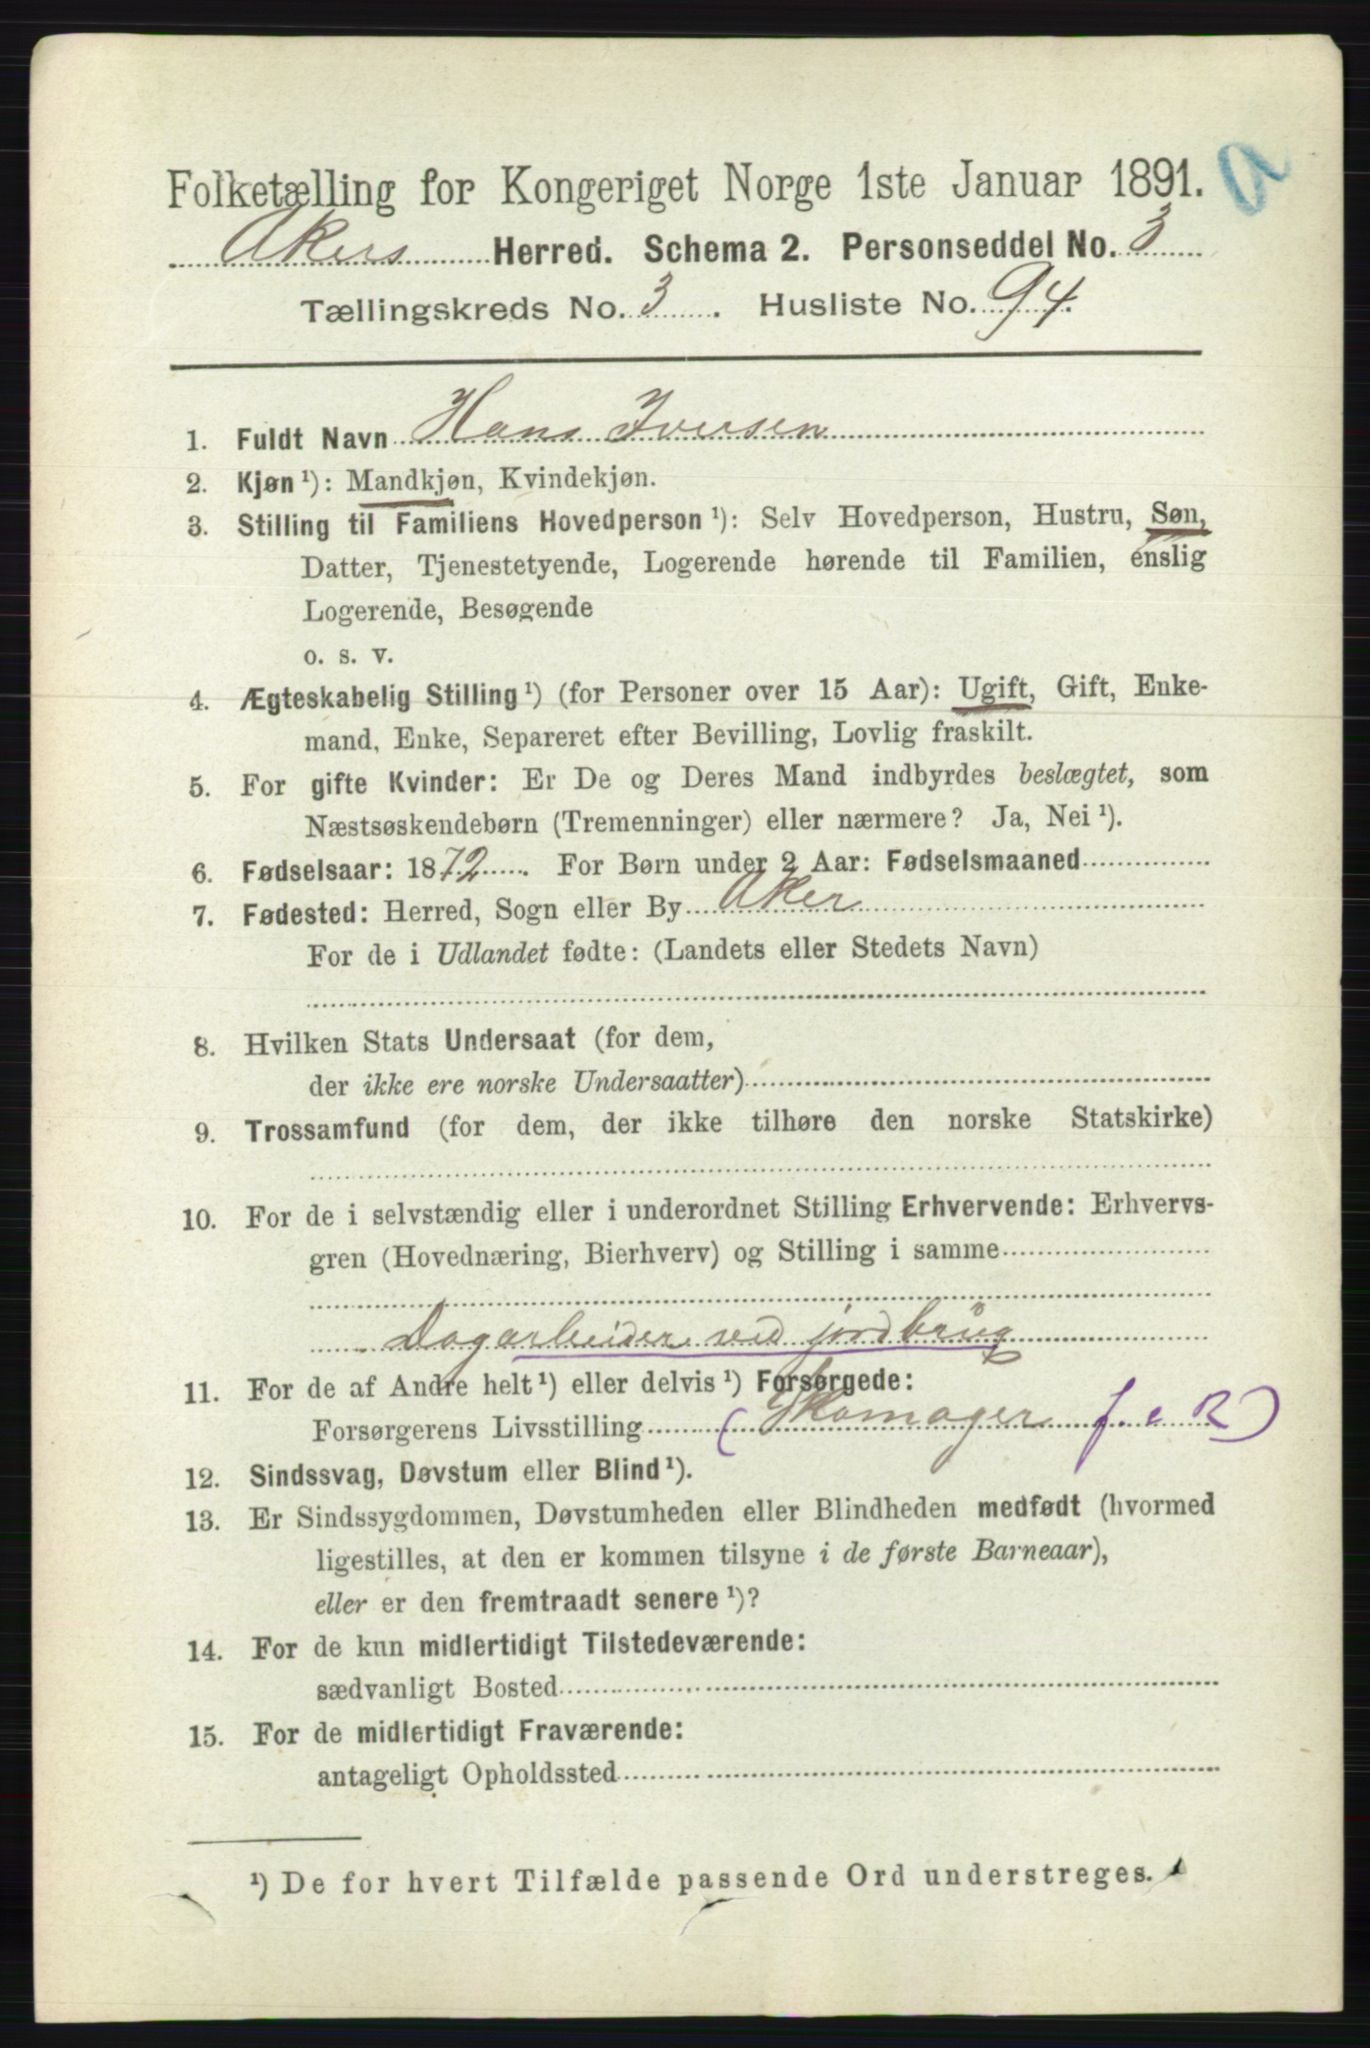 Folketælling for Kongeriget Norge 1ste Januar 1891. a
Akers Herred. Schema 2. Personseddel No. 3
Tællingskreds No. 3. Husliste No. 94.
1. Fuldt Navn Hans Iversen
2. Kjøn ¹): Mandkjøn, Kvindekjøn.
3. Stilling til Familiens Hovedperson ¹): Selv Hovedperson, Hustru, Søn,
Datter, Tjenestetyende, Logerende hørende til Familien, enslig
Logerende, Besøgende
o. s. v.
4. Ægteskabelig Stilling ¹) (for Personer over 15 Aar): Ugift, Gift, Enke-
mand, Enke, Separeret efter Bevilling, Lovlig fraskilt.
5. For gifte Kvinder: Er De og Deres Mand indbyrdes beslægtet, som
Næstsøskendebørn (Tremenninger) eller nærmere? Ja, Nei ¹).
6. Fødselsaar: 1872. For Børn under 2 Aar: Fødselsmaaned
7. Fødested: Herred, Sogn eller By Aker
For de i Udlandet fødte: (Landets eller Stedets Navn)
8. Hvilken Stats Undersaat (for dem,
der ikke ere norske Undersaatter)
9. Trossamfund (for dem, der ikke tilhøre den norske Statskirke)
10. For de i selvstændig eller i underordnet Stilling Erhvervende: Erhvervs-
gren (Hovednæring, Bierhverv) og Stilling i samme
Dagarbeider ved jordbrug
11. For de af Andre helt ¹) eller delvis ¹) Forsørgede:
Forsørgerens Livsstilling (Skomager f. e R)
12. Sindssvag, Døvstum eller Blind ¹).
13. Er Sindssygdommen, Døvstumheden eller Blindheden medfødt (hvormed
ligestilles, at den er kommen tilsyne i de første Barneaar),
eller er den fremtraadt senere ¹)?
14. For de kun midlertidigt Tilstedeværende:
sædvanligt Bosted
15. For de midlertidigt Fraværende:
antageligt Opholdssted
¹) De for hvert Tilfælde passende Ord understreges.